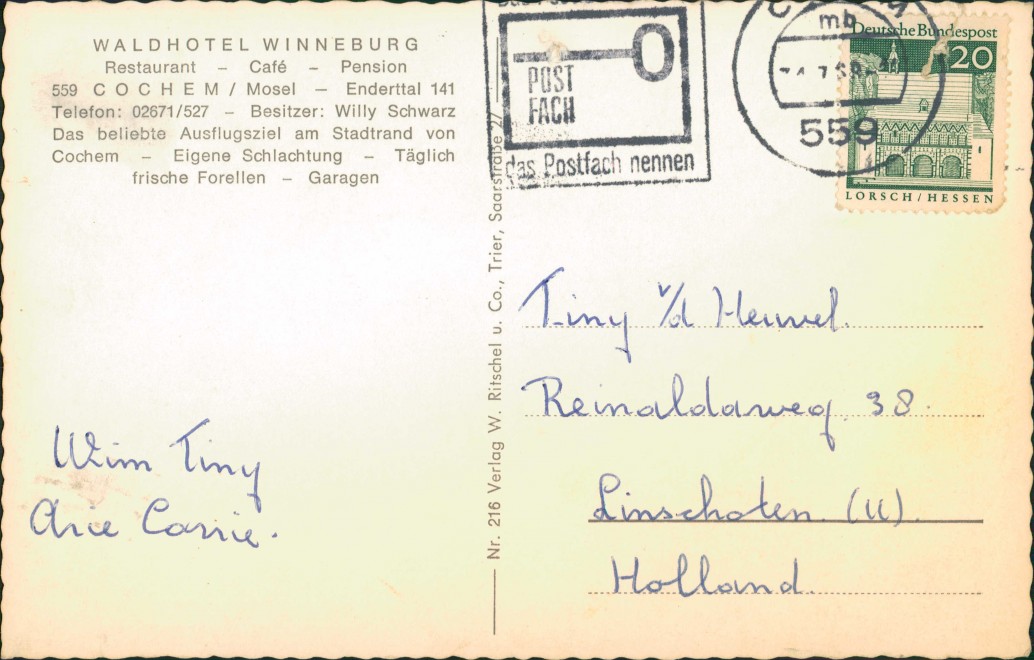 WALDHOTEL WINNEBURG
Restaurant – Café – Pension
559 COCHEM / Mosel – Enderttal 141
Telefon: 02671/527 – Besitzer: Willy Schwarz
Das beliebte Ausflugsziel am Stadtrand von
Cochem – Eigene Schlachtung – Täglich
frische Forellen – Garagen
Wim Tiny
Arie Corrie.
Nr. 216 Verlag W. Ritschel u. Co., Trier, Saarstraße 27
POST
FACH
das Postfach nennen
mb
559
Deutsche Bundespost
20
LORSCH / HESSEN
Tiny v/d Heuvel.
Reinaldaweg 38.
Linschoten (U).
Holland.